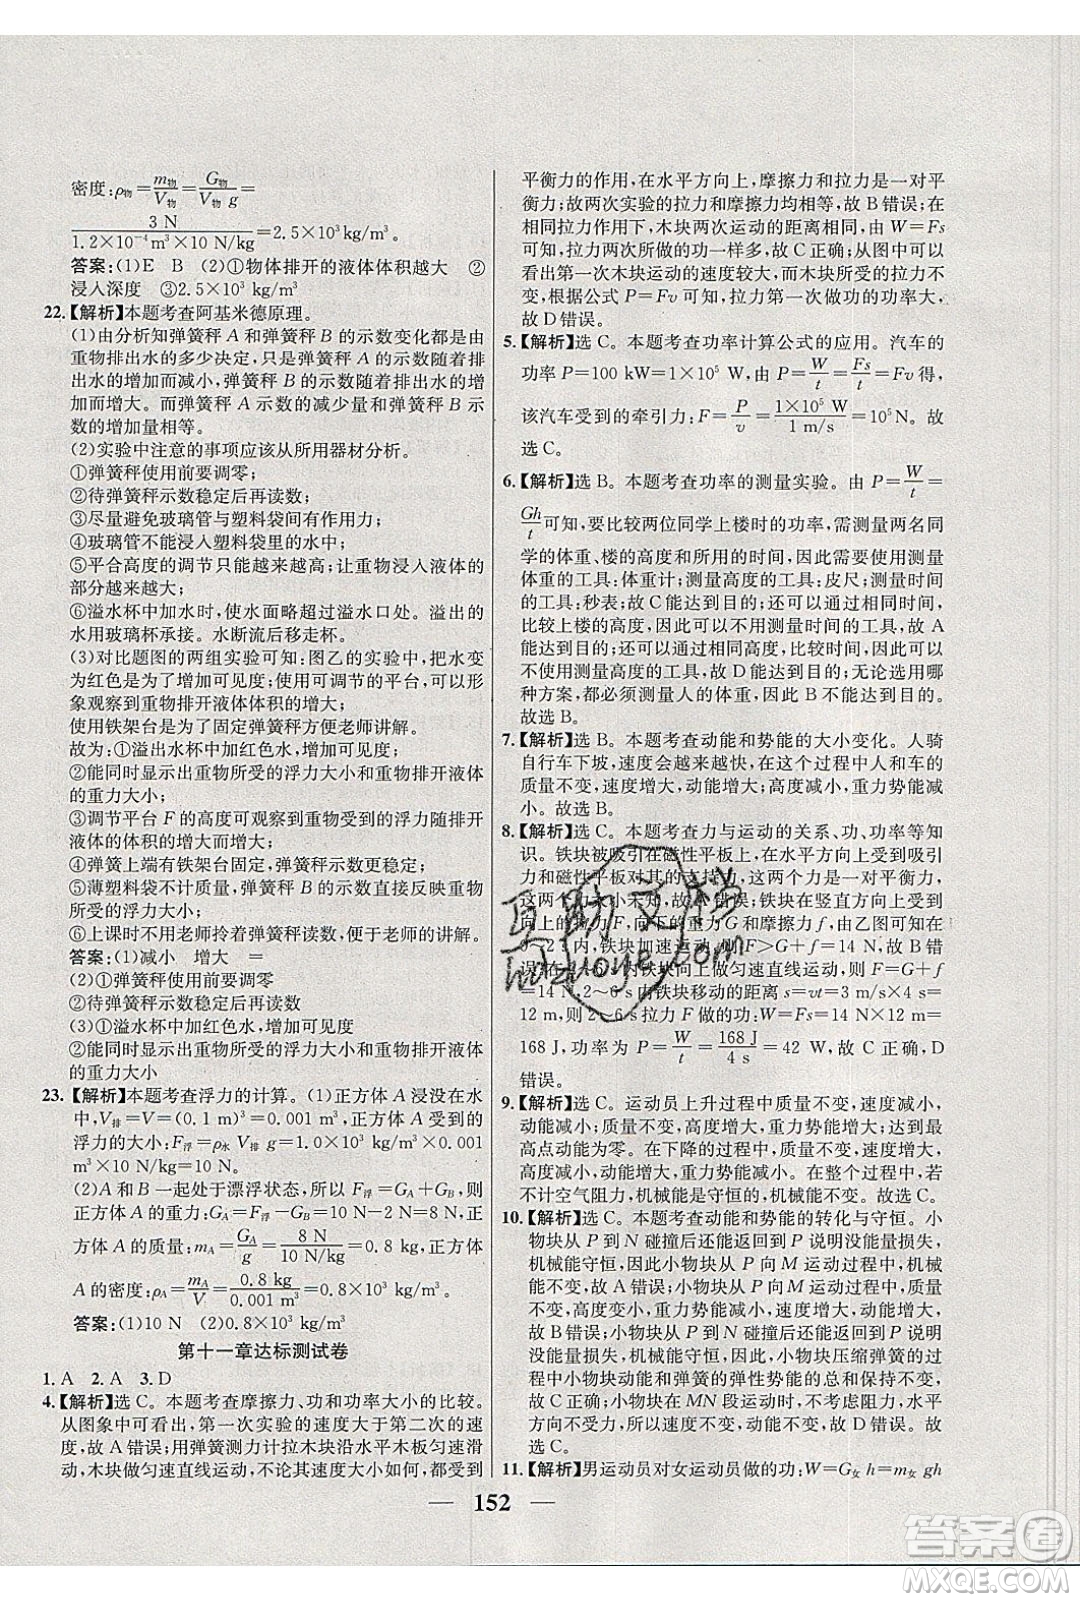 密度:ρ物=m物/V物=G物/(V物 g)=
3 N/(1.2×10⁻⁴m³×10 N/kg)=2.5×10³ kg/m³
答案:(1)E B (2)①物体排开的液体体积越大 ②
浸入深度 ③2.5×10³ kg/m³
22.【解析】本题考查阿基米德原理。
(1)由分析知弹簧秤 A 和弹簧秤 B 的示数变化都是由
重物排出水的多少决定,只是弹簧秤 A 的示数随着排
出水的增加而减小,弹簧秤 B 的示数随着排出水的增
加而增大。而弹簧秤 A 示数的减少量和弹簧秤 B 示数
的增加量相等。
(2)实验中注意的事项应该从所用器材分析。
①弹簧秤使用前要调零;
②待弹簧秤示数稳定后再读数;
③尽量避免玻璃管与塑料袋间有作用力;
④玻璃管不能浸入塑料袋里的水中;
⑤平台高度的调节只能越来越高;让重物浸入液体的
部分越来越大;
⑥溢水杯中加水时,使水面略超过溢水口处。溢出的
水用玻璃杯承接。水断流后移走杯。
(3)对比题图的两组实验可知:图乙的实验中,把水变
为红色是为了清晰可见;使用可调节的平台,可以形
象观察到重物排开液体体积的增大;
使用铁架台是为了固定弹簧秤方便老师讲解。
故为:①溢出水杯中加红色水,增加可见度;
②能同时显示出重物所受的浮力大小和重物排开液体
的重力大小;
③调节平台 F 的高度可观察到重物受到的浮力随排开
液体的体积的增大而增大;
④弹簧秤上端有铁架台固定,弹簧秤不晃动;
⑤薄塑料袋不计质量,弹簧秤 B 的示数直接反映重物
所受的浮力大小;
⑥上课时不用老师拎着弹簧秤,方便老师的讲解。
答案:(1)减小 增大 =
(2)①弹簧秤使用前要调零
②待弹簧秤示数稳定后再读数
(3)①溢水杯中加红色水,增加可见度
②能同时显示出重物所受的浮力大小和重物排开液体
的重力大小
23.【解析】本题考查浮力的计算。(1)正方体 A 浸没在水
中,V排=V=(0.1 m)³=0.001 m³,正方体 A 受到的
浮力的大小:F浮=ρ水 V排 g=1.0×10³ kg/m³×0.001
m³×10 N/kg=10 N。
(2)A 和 B 一起处于漂浮状态,所以 F浮=GA+GB,则
正方体 A 的重力:GA=F浮-GB=10 N-2 N=8 N,正
方体 A 的质量:mA=GA/g=8 N/(10 N/kg)=0.8 kg,正方体
A 的密度:ρA=mA/V=0.8 kg/0.001 m³=0.8×10³ kg/m³。
答案:(1)10 N (2)0.8×10³ kg/m³
第十一章达标测试卷
1.A 2.A 3.D
4.【解析】选 C。本题考查摩擦力、功和功率大小的比较。
从图象中可看出,第一次实验的速度大于第二次的速
度,故 A 错误;用弹簧测力计拉木块沿水平木板匀速滑
动,木块做匀速直线运动,不论其速度大小如何,都受到
平衡力的作用,在水平方向上,摩擦力和拉力是一对平
衡力;故两次实验的拉力和摩擦力均相等,故 B 错误;在
相同拉力作用下,木块两次运动的距离相同,由 W=Fs
可知,拉力两次所做的功一样多,故 C 正确;从图中可以
看出第一次木块运动的速度较大,而木块所受的拉力不
变,根据公式 P=Fv 可知,拉力第一次做功的功率大,
故 D 错误。
5.【解析】选 C。本题考查功率计算公式的应用。汽车的
功率 P=100 kW=1×10⁵ W,由 P=W/t=Fs/t=Fv 得,
该汽车受到的牵引力:F=P/v=1×10⁵ W/1 m/s=10⁵N。故
选 C。
6.【解析】选 B。本题考查功率的测量实验。由 P=W/t=
Gh/t可知,要比较两位同学上楼时的功率,需测量两名同
学的体重、楼的高度和所用的时间,因此需要使用测量
体重的工具:体重计;测量高度的工具:皮尺;测量时间
的工具:秒表;故 C 能达到目的;还可以通过相同时间,
比较上楼的高度来得出功率的大小关系,因此,故 A
能达到目的;还可以用上相同的高度,测量时间,因此
可以不用测量高度的工具,故 D 能达到目的;无论选用哪
种方案,都必须测量人的体重,因此 B 不能达到目的。
故选 B。
7.【解析】选 B。本题考查动能和势能的大小变化。人骑
自行车下坡,速度会越来越快,在这个过程中人和车的
质量不变,速度增大,动能增大,高度减小,重力势能减
小。故选 B。
8.【解析】选 C。本题考查力与运动的关系、功、功率等知
识。铁块被吸引在磁性平板上,在水平方向上受到吸引
力和磁性平板对其的支持力,这两个力是一对平衡力,
这两个力大小未知,故 A 错误;铁块在竖直方向上受到
向上的拉力 F,向下的重力G 和摩擦力 f,由乙图可知
0~2 s 内,铁块加速运动,F>G+f=14 N,故 B 错
误;在2~6 s内铁块向上做匀速直线运动,F=G+f
=14 N,2~6 s 内铁块移动的距离 s=vt=3 m/s×4 s=
12 m,则 2~6 s拉力 F 做的功:W=Fs=14 N×12 m=
168 J,功率为 P=W/t=168 J/4 s=42 W,故 C 正确,D
错误。
9.【解析】选 C。运动员上升过程中质量不变,速度减小,
动能减小;质量不变,高度增大,重力势能增大;达到最
高点动能为零。在下降的过程中,质量不变,速度增大,
高度减小,动能增大,重力势能减小。在整个过程中,若
不计空气阻力,机械能是守恒的,机械能不变。故选 C。
10.【解析】选 C。本题考查动能和势能的转化与守恒。小
物块从 P 到 N 碰撞后还能返回 P 说明没能量损失,
机械能守恒,机械能不变;而小物块从 P 向 M 运动过
程中,也没能量损失,故机械能也不变,即整个过程机械
能不变,故 A 错误;小物块从 P 向 M 运动过程中,质量
不变,高度变小,重力势能减小,速度增大,动能增大,
故 B 错误;小物块与 N 碰撞后又能返回 P 说明无能量
损失,机械能守恒,则小物块压缩弹簧过程中,小物块
的动能与弹簧的弹性势能的总和保持不变,故 C 正
确;小物块在 MN段运动时,速度不变,质量不变,故动
能不变,而重力势能也不变,机械能不变,故 D 错误。故
选 C。
11.【解析】男运动员对女运动员做的功:W=G女 h=m女 gh
152
互助文档
huzuoye.com
答案圈
MXQE.COM